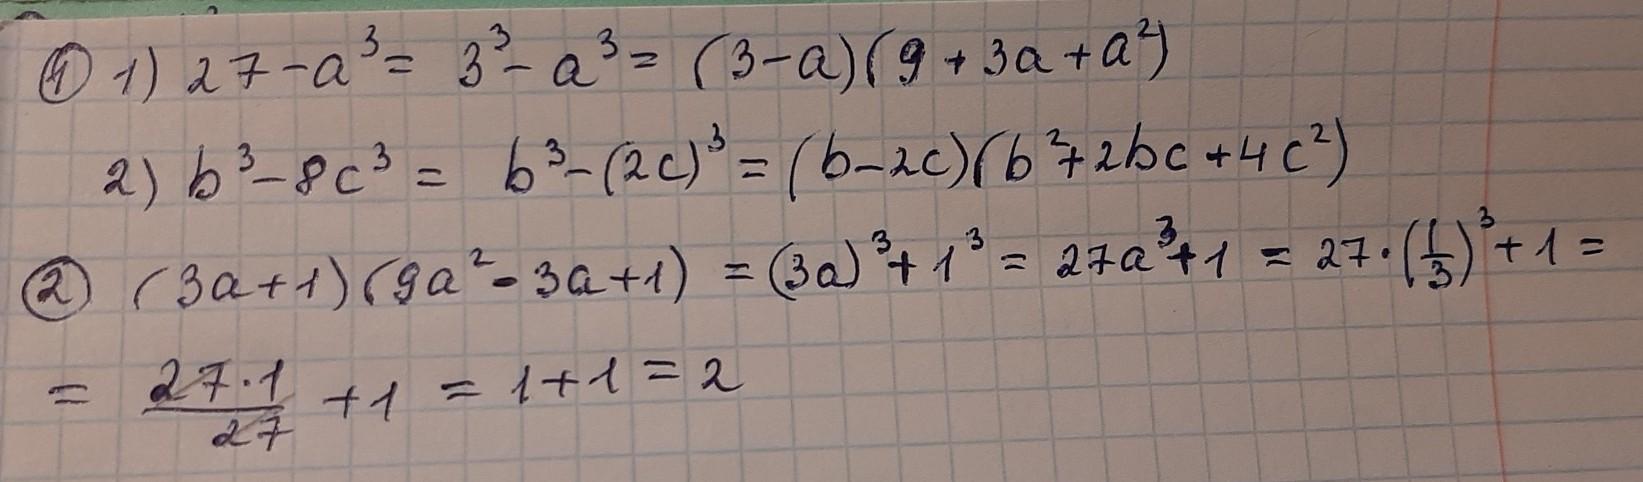 ① 1) 27 - a³ = 3³ - a³ = (3-a)(9 + 3a + a²)
2) b³ - 8c³ = b³ - (2c)³ = (b - 2c)(b² + 2bc + 4c²)
② (3a+1)(9a² - 3a + 1) = (3a)³ + 1³ = 27a³ + 1 = 27 · (1/3)³ + 1 =
= 27·1/27 + 1 = 1 + 1 = 2